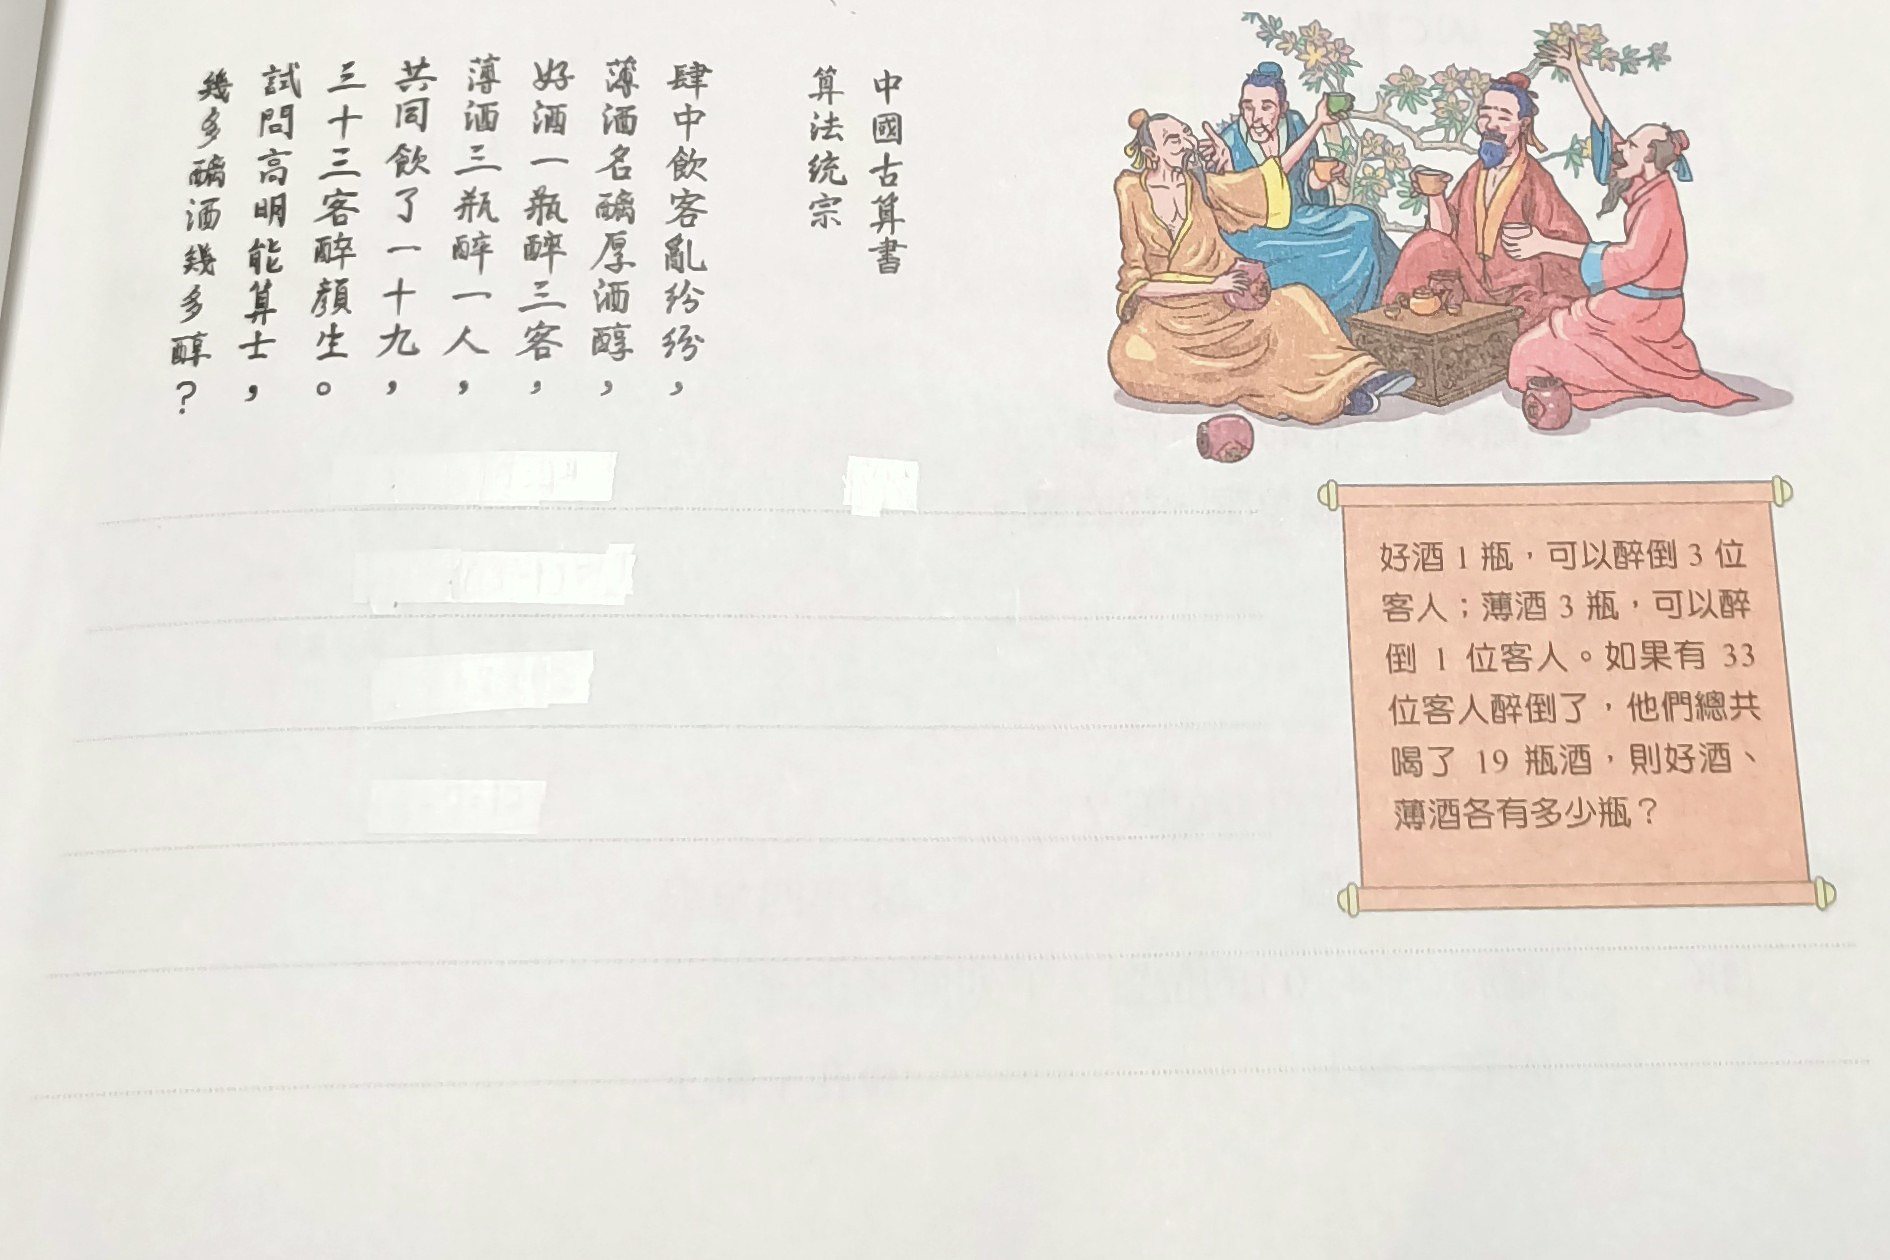 中國古算書
算法統宗
肆中飲客亂紛紛,
薄酒名醨厚酒醇,
好酒一瓶醉三客,
薄酒三瓶醉一人,
共同飲了一十九,
三十三客醉顏生。
試問高明能算士,
幾多醨酒幾多醇?
好酒 1 瓶，可以醉倒 3 位
客人；薄酒 3 瓶，可以醉
倒 1 位客人。如果有 33
位客人醉倒了，他們總共
喝了 19 瓶酒，則好酒、
薄酒各有多少瓶？